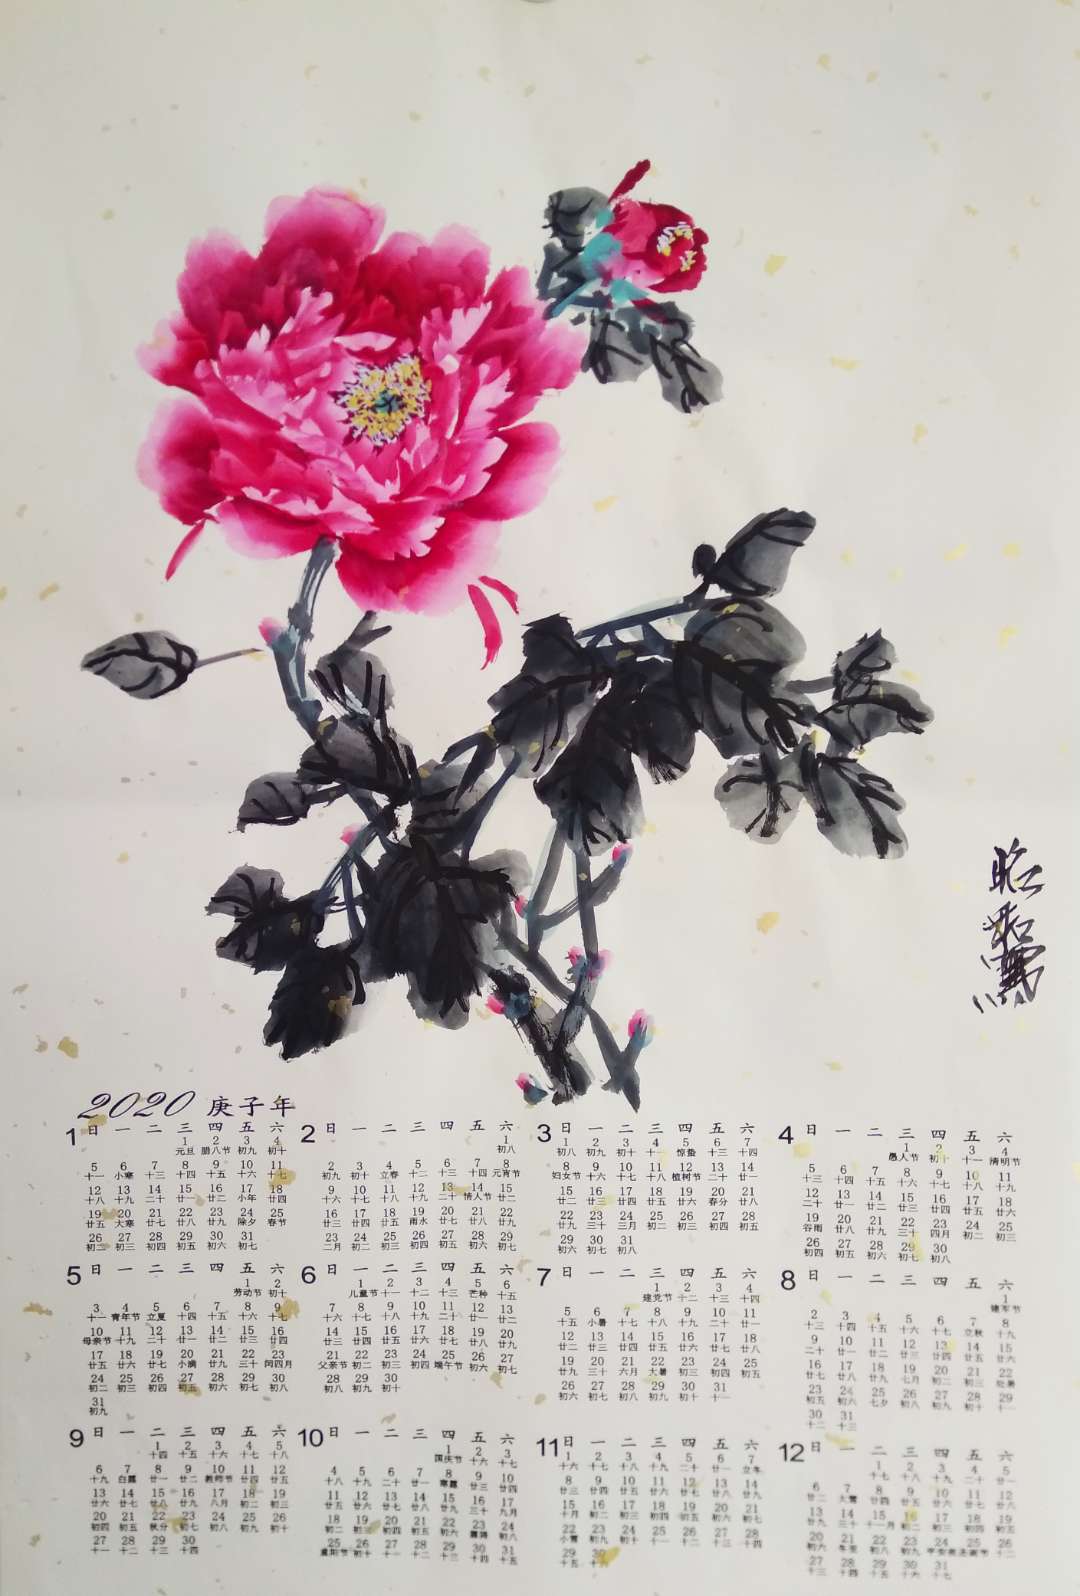 2020 庚子年
1
日 一 二 三 四 五 六
1 2 3 4
元旦 腊八节 初九 初十
5 6 7 8 9 10 11
十一 小寒 十三 十四 十五 十六 十七
12 13 14 15 16 17 18
十八 十九 二十 廿一 廿二 小年 廿四
19 20 21 22 23 24 25
廿五 大寒 廿七 廿八 廿九 除夕 春节
26 27 28 29 30 31
初二 初三 初四 初五 初六 初七
2
日 一 二 三 四 五 六
1
初八
2 3 4 5 6 7 8
初九 初十 立春 十二 十三 十四 元宵节
9 10 11 12 13 14 15
十六 十七 十八 十九 二十 情人节 廿二
16 17 18 19 20 21 22
廿三 廿四 廿五 雨水 廿七 廿八 廿九
23 24 25 26 27 28 29
二月 初二 初三 初四 初五 初六 初七
3
日 一 二 三 四 五 六
1 2 3 4 5 6 7
初八 初九 初十 十一 惊蛰 十三 十四
8 9 10 11 12 13 14
妇女节 十六 十七 十八 植树节 二十 廿一
15 16 17 18 19 20 21
廿二 廿三 廿四 廿五 廿六 春分 廿八
22 23 24 25 26 27 28
廿九 三十 三月 初二 初三 初四 初五
29 30 31
初六 初七 初八
4
日 一 二 三 四 五 六
1 2 3 4
愚人节 初十 十一 清明节
5 6 7 8 9 10 11
十三 十四 十五 十六 十七 十八 十九
12 13 14 15 16 17 18
二十 廿一 廿二 廿三 廿四 廿五 廿六
19 20 21 22 23 24 25
谷雨 廿八 廿九 三十 四月 初二 初三
26 27 28 29 30
初四 初五 初六 初七 初八
5
日 一 二 三 四 五 六
1 2
劳动节 初十
3 4 5 6 7 8 9
十一 青年节 立夏 十四 十五 十六 十七
10 11 12 13 14 15 16
母亲节 十九 二十 廿一 廿二 廿三 廿四
17 18 19 20 21 22 23
廿五 廿六 廿七 小满 廿九 三十 闰四月
24 25 26 27 28 29 30
初二 初三 初四 初五 初六 初七 初八
31
初九
6
日 一 二 三 四 五 六
1 2 3 4 5 6
儿童节 十一 十二 十三 芒种 十五
7 8 9 10 11 12 13
十六 十七 十八 十九 二十 廿一 廿二
14 15 16 17 18 19 20
廿三 廿四 廿五 廿六 廿七 廿八 廿九
21 22 23 24 25 26 27
父亲节 初二 初三 初四 端午节 初六 初七
28 29 30
初八 初九 初十
7
日 一 二 三 四 五 六
1 2 3 4
建党节 十二 十三 十四
5 6 7 8 9 10 11
十五 小暑 十七 十八 十九 二十 廿一
12 13 14 15 16 17 18
廿二 廿三 廿四 廿五 廿六 廿七 廿八
19 20 21 22 23 24 25
廿九 三十 六月 大暑 初三 初四 初五
26 27 28 29 30 31
初六 初七 初八 初九 初十 十一
8
日 一 二 三 四 五 六
1
建军节
2 3 4 5 6 7 8
十三 十四 十五 十六 十七 立秋 十九
9 10 11 12 13 14 15
二十 廿一 廿二 廿三 廿四 廿五 廿六
16 17 18 19 20 21 22
廿七 廿八 廿九 七月 初二 初三 处暑
23 24 25 26 27 28 29
初五 初六 七夕 初八 初九 初十 十一
30 31
十二 十三
9
日 一 二 三 四 五 六
1 2 3 4 5
十四 十五 十六 十七 十八
6 7 8 9 10 11 12
十九 白露 廿一 廿二 教师节 廿四 廿五
13 14 15 16 17 18 19
廿六 廿七 廿八 廿九 八月 初二 初三
20 21 22 23 24 25 26
初四 初五 秋分 初七 初八 初九 初十
27 28 29 30
十一 十二 十三 十四
10
日 一 二 三 四 五 六
1 2 3
国庆节 十六 十七
4 5 6 7 8 9 10
十八 十九 二十 廿一 寒露 廿三 廿四
11 12 13 14 15 16 17
廿五 廿六 廿七 廿八 廿九 三十 九月
18 19 20 21 22 23 24
初二 初三 初四 初五 初六 霜降 初八
25 26 27 28 29 30 31
重阳节 初十 十一 十二 十三 十四 十五
11
日 一 二 三 四 五 六
1 2 3 4 5 6 7
十六 十七 十八 十九 二十 廿一 立冬
8 9 10 11 12 13 14
廿三 廿四 廿五 廿六 廿七 廿八 廿九
15 16 17 18 19 20 21
十月 初二 初三 初四 初五 初六 初七
22 23 24 25 26 27 28
小雪 初九 初十 十一 十二 十三 十四
29 30
十五 十六
12
日 一 二 三 四 五 六
1 2 3 4 5
十七 十八 十九 二十 廿一
6 7 8 9 10 11 12
廿二 大雪 廿四 廿五 廿六 廿七 廿八
13 14 15 16 17 18 19
廿九 三十 十一月 初二 初三 初四 初五
20 21 22 23 24 25 26
初六 冬至 初八 初九 平安夜 圣诞节 十二
27 28 29 30 31
十三 十四 十五 十六 十七